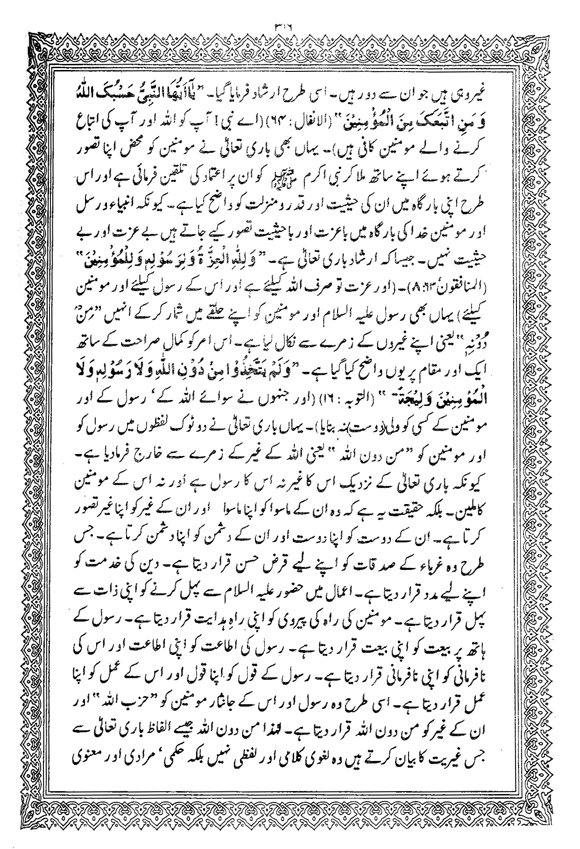 ۳۱۶
غیر وہی ہیں جو ان سے دور ہیں۔ اسی طرح ارشاد فرمایا گیا۔ "یٰٓاَیُّھَا النَّبِیُّ حَسْبُکَ اللّٰہُ
وَ مَنِ اتَّبَعَکَ مِنَ الْمُؤْمِنِیْنَ" (الانفال : ۶۴) (اے نبی! آپ کو اللہ اور آپ کی اتباع
کرنے والے مومنین کافی ہیں)۔ یہاں بھی باری تعالیٰ نے مومنین کو محض اپنا تصور
کرتے ہوئے اپنے ساتھ ملا کر نبی اکرم ﷺ کو ان پر اعتماد کی تلقین فرمائی ہے اور اس
طرح اپنی بارگاہ میں ان کی حیثیت اور قدر و منزلت کو واضح کیا ہے۔ کیونکہ انبیاء و رسل
اور مومنین خدا کی بارگاہ میں باعزت اور باحیثیت تصور کیے جاتے ہیں بے عزت اور بے
حیثیت نہیں۔ جیسا کہ ارشاد باری تعالیٰ ہے۔ "وَلِلّٰہِ الْعِزَّۃُ وَلِرَسُوْلِہٖ وَلِلْمُؤْمِنِیْنَ"
(المنافقون ۶۳:۸)۔ (اور عزت تو صرف اللہ کیلئے ہے اور اس کے رسول کیلئے اور مومنین
کیلئے) یہاں بھی رسول علیہ السلام اور مومنین کو اپنے حلقے میں شمار کر کے انہیں "مِنْ
دُوْنِہٖ" یعنی اپنے غیروں کے زمرے سے نکال لیا ہے۔ اس امر کو کمال صراحت کے ساتھ
ایک اور مقام پر یوں واضح کیا گیا ہے۔ "وَلَمْ یَتَّخِذُوْا مِنْ دُوْنِ اللّٰہِ وَلَا رَسُوْلِہٖ وَلَا
الْمُؤْمِنِیْنَ وَلِیْجَۃً" (التوبہ : ۱۶) (اور جنہوں نے سوائے اللہ کے' رسول کے اور
مومنین کے کسی کو ولی (دوست) نہ بنایا)۔ یہاں باری تعالیٰ نے دو ٹوک لفظوں میں رسول کو
اور مومنین کو "من دون اللہ" یعنی اللہ کے غیر کے زمرے سے خارج فرما دیا ہے۔
کیونکہ باری تعالیٰ کے نزدیک اس کا غیر نہ اس کا رسول ہے اور نہ اس کے مومنین
کاملین۔ بلکہ حقیقت یہ ہے کہ وہ ان کے ماسوا کو اپنا ماسوا اور ان کے غیر کو اپنا غیر تصور
کرتا ہے۔ ان کے دوست کو اپنا دوست اور ان کے دشمن کو اپنا دشمن کرتا ہے۔ جس
طرح وہ غرباء کے صدقات کو اپنے لیے قرض حسن قرار دیتا ہے۔ دین کی خدمت کو
اپنے لیے مدد قرار دیتا ہے۔ اعمال میں حضور علیہ السلام سے پہل کرنے کو اپنی ذات سے
پہل قرار دیتا ہے۔ مومنین کی راہ کی پیروی کو اپنی راہِ ہدایت قرار دیتا ہے۔ رسول کے
ہاتھ پر بیعت کو اپنی بیعت قرار دیتا ہے۔ رسول کی اطاعت کو اپنی اطاعت اور اس کی
نافرمانی کو اپنی نافرمانی قرار دیتا ہے۔ رسول کے قول کو اپنا قول اور اس کے عمل کو اپنا
عمل قرار دیتا ہے۔ اسی طرح وہ رسول اور اس کے جانثار مومنین کو "حزب اللہ" اور
ان کے غیر کو من دون اللہ قرار دیتا ہے۔ لہٰذا من دون اللہ جیسے الفاظ باری تعالیٰ سے
جس غیریت کا بیان کرتے ہیں وہ لغوی کلامی اور لفظی نہیں بلکہ حکمی' مرادی اور معنوی